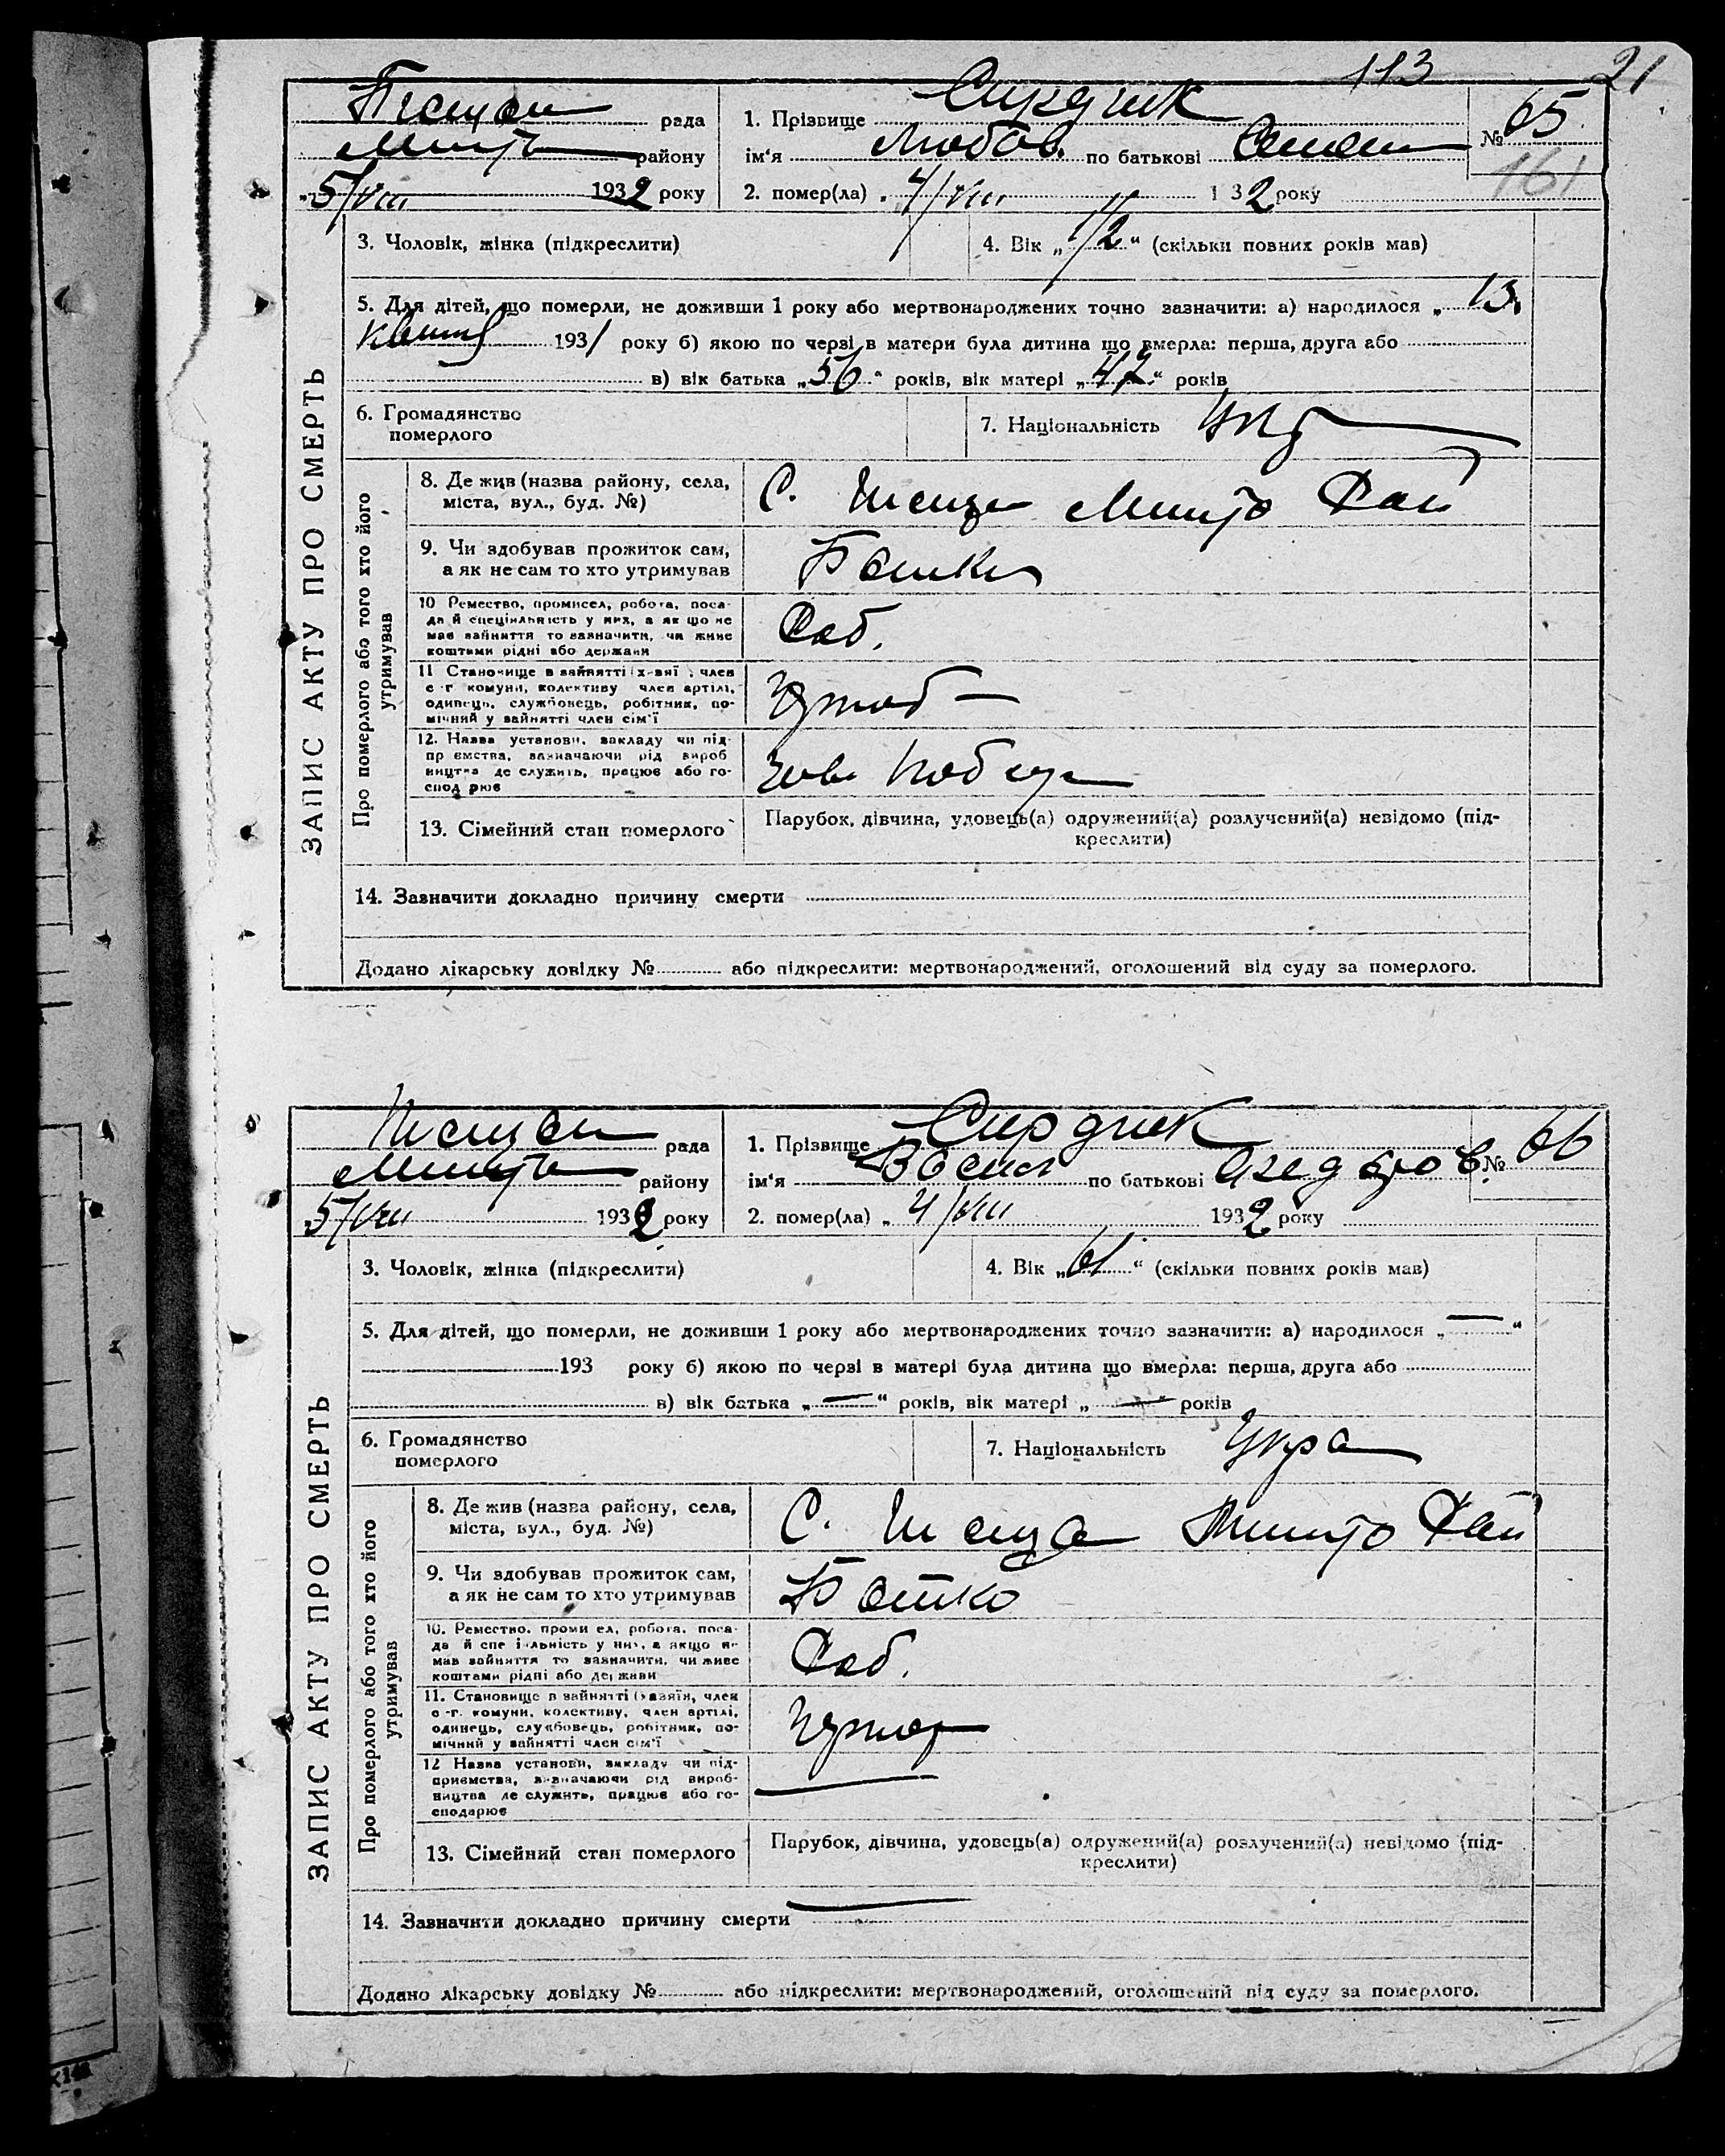 113 21
рада
району
5/VIII 1932 року
1. Прізвище
ім'я Любов. по батькові
2. помер(ла) 4/VIII 1 32 року
№ 65
161
3. Чоловік, жінка (підкреслити)
4. Вік „1/2“ (скільки повних років мав)
5. Для дітей, що померли, не доживши 1 року або мертвонароджених точно зазначити: а) народилося „13
1931 року б) якою по черзі в матери була дитина що вмерла: перша, друга або
в) вік батька „56“ років, вік матері „42“ років
6. Громадянство
померлого
7. Національність Укр
ЗАПИС АКТУ ПРО СМЕРТЬ
Про померлого або того хто його
утримував
8. Де жив (назва району, села,
міста, вул., буд. №)
С.
9. Чи здобував прожиток сам,
а як не сам то хто утримував
10 Ремество, промисел, робота, поса-
да й спеціяльність у них, а як що не
мав зайняття то зазначити, чи живе
коштами рідні або держави
Роб.
11 Становище в зайнятті х-вяї , член
с г комуни, колективу член артілі,
одинець, службовець, робітник, по-
мічний у зайнятті член сім'ї
12. Назва установи, закладу чи під-
пр ємства, зазначаючи рід вироб
ництва де служить, працює або го-
спод рює
13. Сімейний стан померлого
Парубок, дівчина, удовець(а) одружений(а) розлучений(а) невідомо (під-
креслити)
14. Зазначити докладно причину смерти
Додано лікарську довідку № або підкреслити: мертвонароджений, оголошений від суду за померлого.
рада
району
5/VIII 1932 року
1. Прізвище Сирдик
ім'я по батькові
2. помер(ла) „ 4/VIII 1932 року
№ 66
3. Чоловік, жінка (підкреслити)
4. Вік „61“ (скільки повних років мав)
5. Для дітей, що померли, не доживши 1 року або мертвонароджених точно зазначити: а) народилося „—“
193 року б) якою по черзі в матері була дитина що вмерла: перша, друга або
в) вік батька „—“ років, вік матері „—“ років
6. Громадянство
померлого
7. Національність Укра
ЗАПИС АКТУ ПРО СМЕРТЬ
Про померлого або того хто його
утримував
8. Де жив (назва району, села,
міста, вул., буд. №)
С.
9. Чи здобував прожиток сам,
а як не сам то хто утримував
Батько
10. Ремество, проми ел, робота, поса-
да й спе і льність у них, а якщо не
мав зайняття то зазначити, чи живе
коштами рідні або держави
Роб.
11. Становище в зайнятті (хазяїн, член
с -г. комуни, колективу, член артілі,
одинець, службовець, робітник, по-
мічний у зайнятті член сім'ї
12 Назва установи, закладу чи під-
приємства, зазначаючи рід вироб-
ництва де служить, працює або го-
сподарює
13. Сімейний стан померлого
Парубок, дівчина, удовець(а) одружений(а) розлучений(а) невідомо (під-
креслити)
14. Зазначити докладно причину смерти
Додано лікарську довідку № або підкреслити: мертвонароджений, оголошений від суду за померлого.